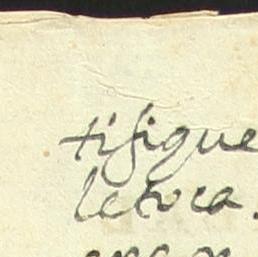 tifique
le toca.